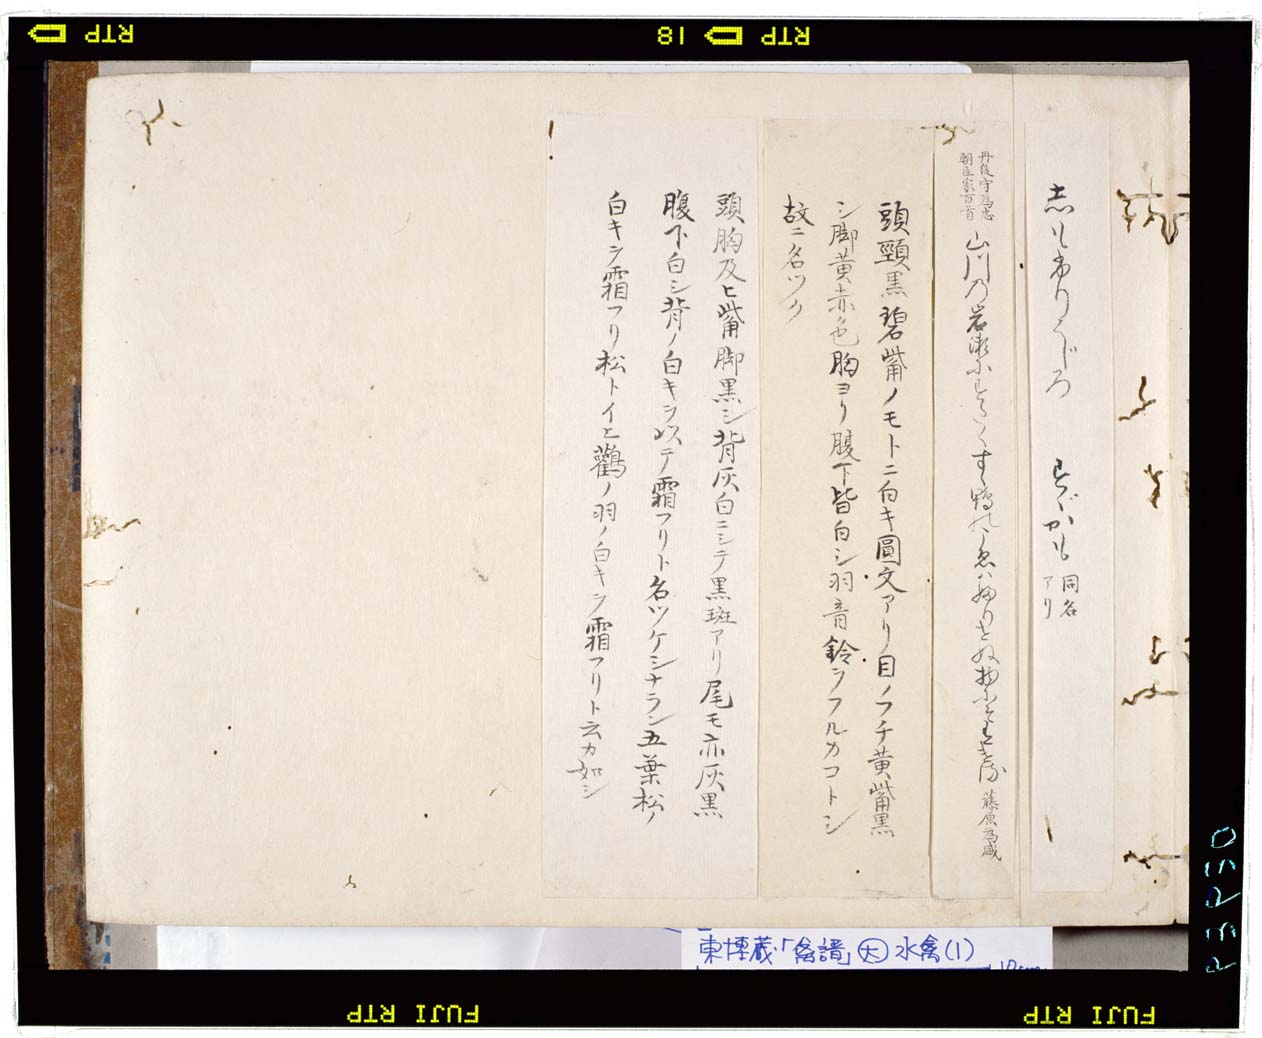 RTP
18
RTP
しもふりはじろ　すゞがも　同名アリ
丹後守為忠朝臣家百首
山川乃岩瀬に
藤原為盛
頭頸黒碧觜ノモトニ白キ圓文アリ目ノフチ黄觜黒
シ脚黄赤色胸ヨリ腹下皆白シ羽音鈴ヲフルカコトシ
故ニ名ツク
頭胸及ヒ觜脚黒シ背灰白ニシテ黒斑アリ尾モ亦灰黒
腹下白シ背ノ白キヲ以テ霜フリト名ツケシナラン五葉松ノ
白キヲ霜フリ松トイヒ鸛ノ羽ノ白キヲ霜フリト云カ如シ
東博蔵「禽譜」大 水禽(1)
10cm
FUJI RTP
FUJI RTP